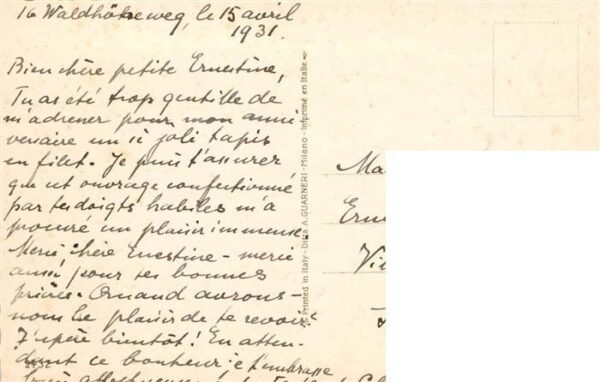 16 Waldhöheweg, le 15 avril
1931.
Bien chère petite Ernestine,
Tu as été trop gentille de
m'adresser pour mon anni-
versaire un si joli tapis
en filet. Je puis t'assurer
que cet ouvrage confectionné
par tes doigts habiles m'a
procuré un plaisir immense.
Merci, chère Ernestine - merci
aussi pour tes bonnes
prières. Quand aurons-
nous le plaisir de te revoir?
J'espère bientôt! En atten-
dant ce bonheur je t'embrasse
bien affectueusement
Printed in Italy - Ditta A. GUARNERI - Milano - Imprimé en Italie
Ma
Ern
Vi